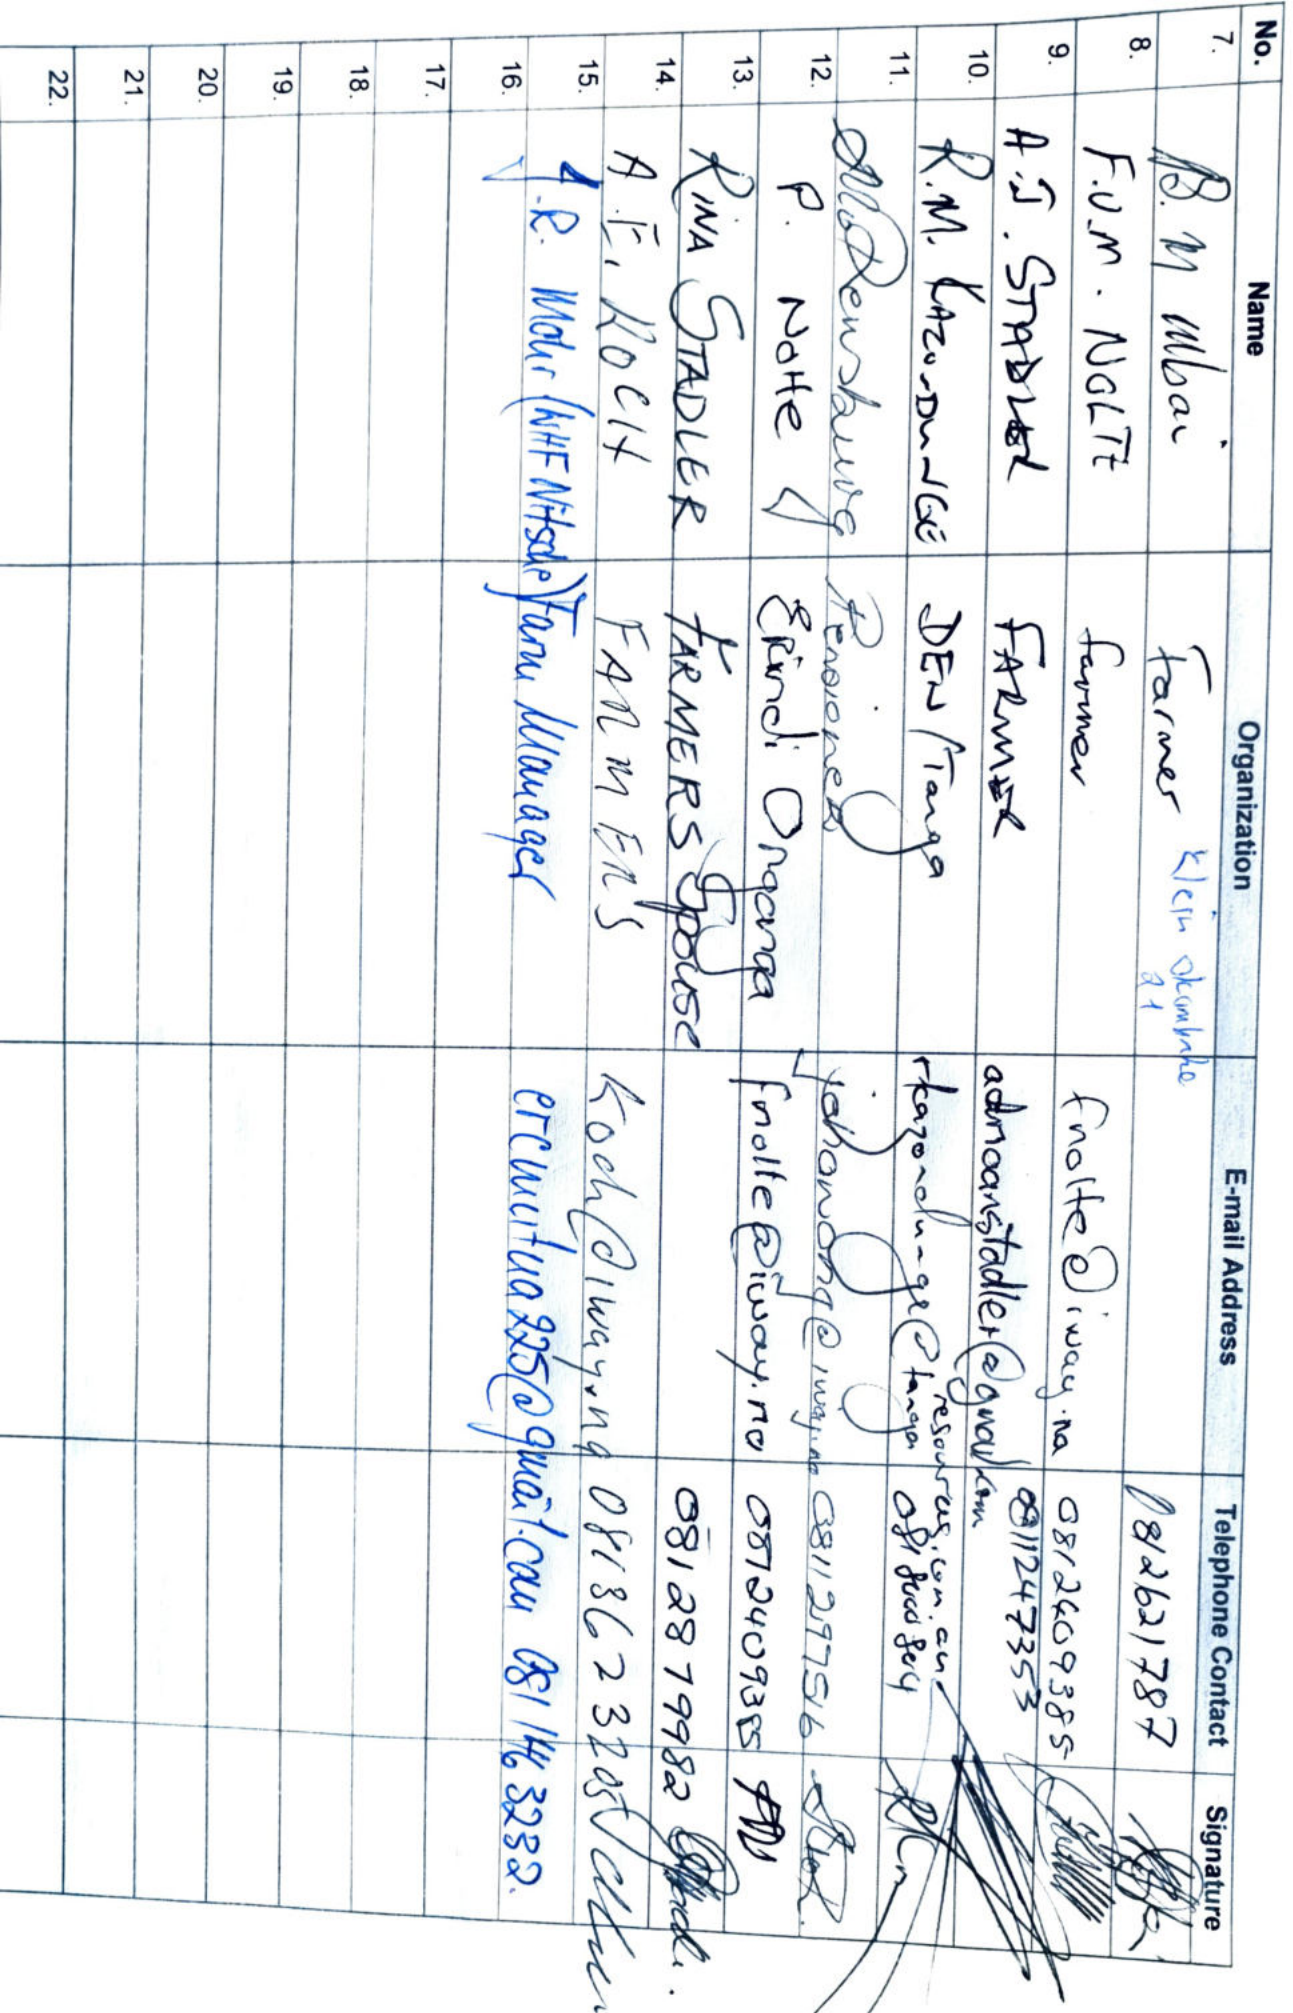 No. Name Organization E-mail Address Telephone Contact Signature
7. B. M Mbai Farmer Klein 0812621787
8. F.U.M. NOLTE farmer fnolte@iway.na 0812409385
9. A.J. STADLER FARMER adriaanstadler@gmail.com 0811247353
10. R.M. KAZONDUNGE DEN/Tanga rkazondunge@tangaresources.com.au 081
11. Pensioner 0811297516
12. P. Nolte Erindi Onganga fnolte@iway.na 0812409385
13. RINA STADLER FARMERS Spouse 0812879982
14. A.E. KOCH FARMERS koch@iway.na 0813623205
15. J.R. Mohr (NHF Nitsche) Farm Manager 081 146 3232.
16.
17.
18.
19.
20.
21.
22.